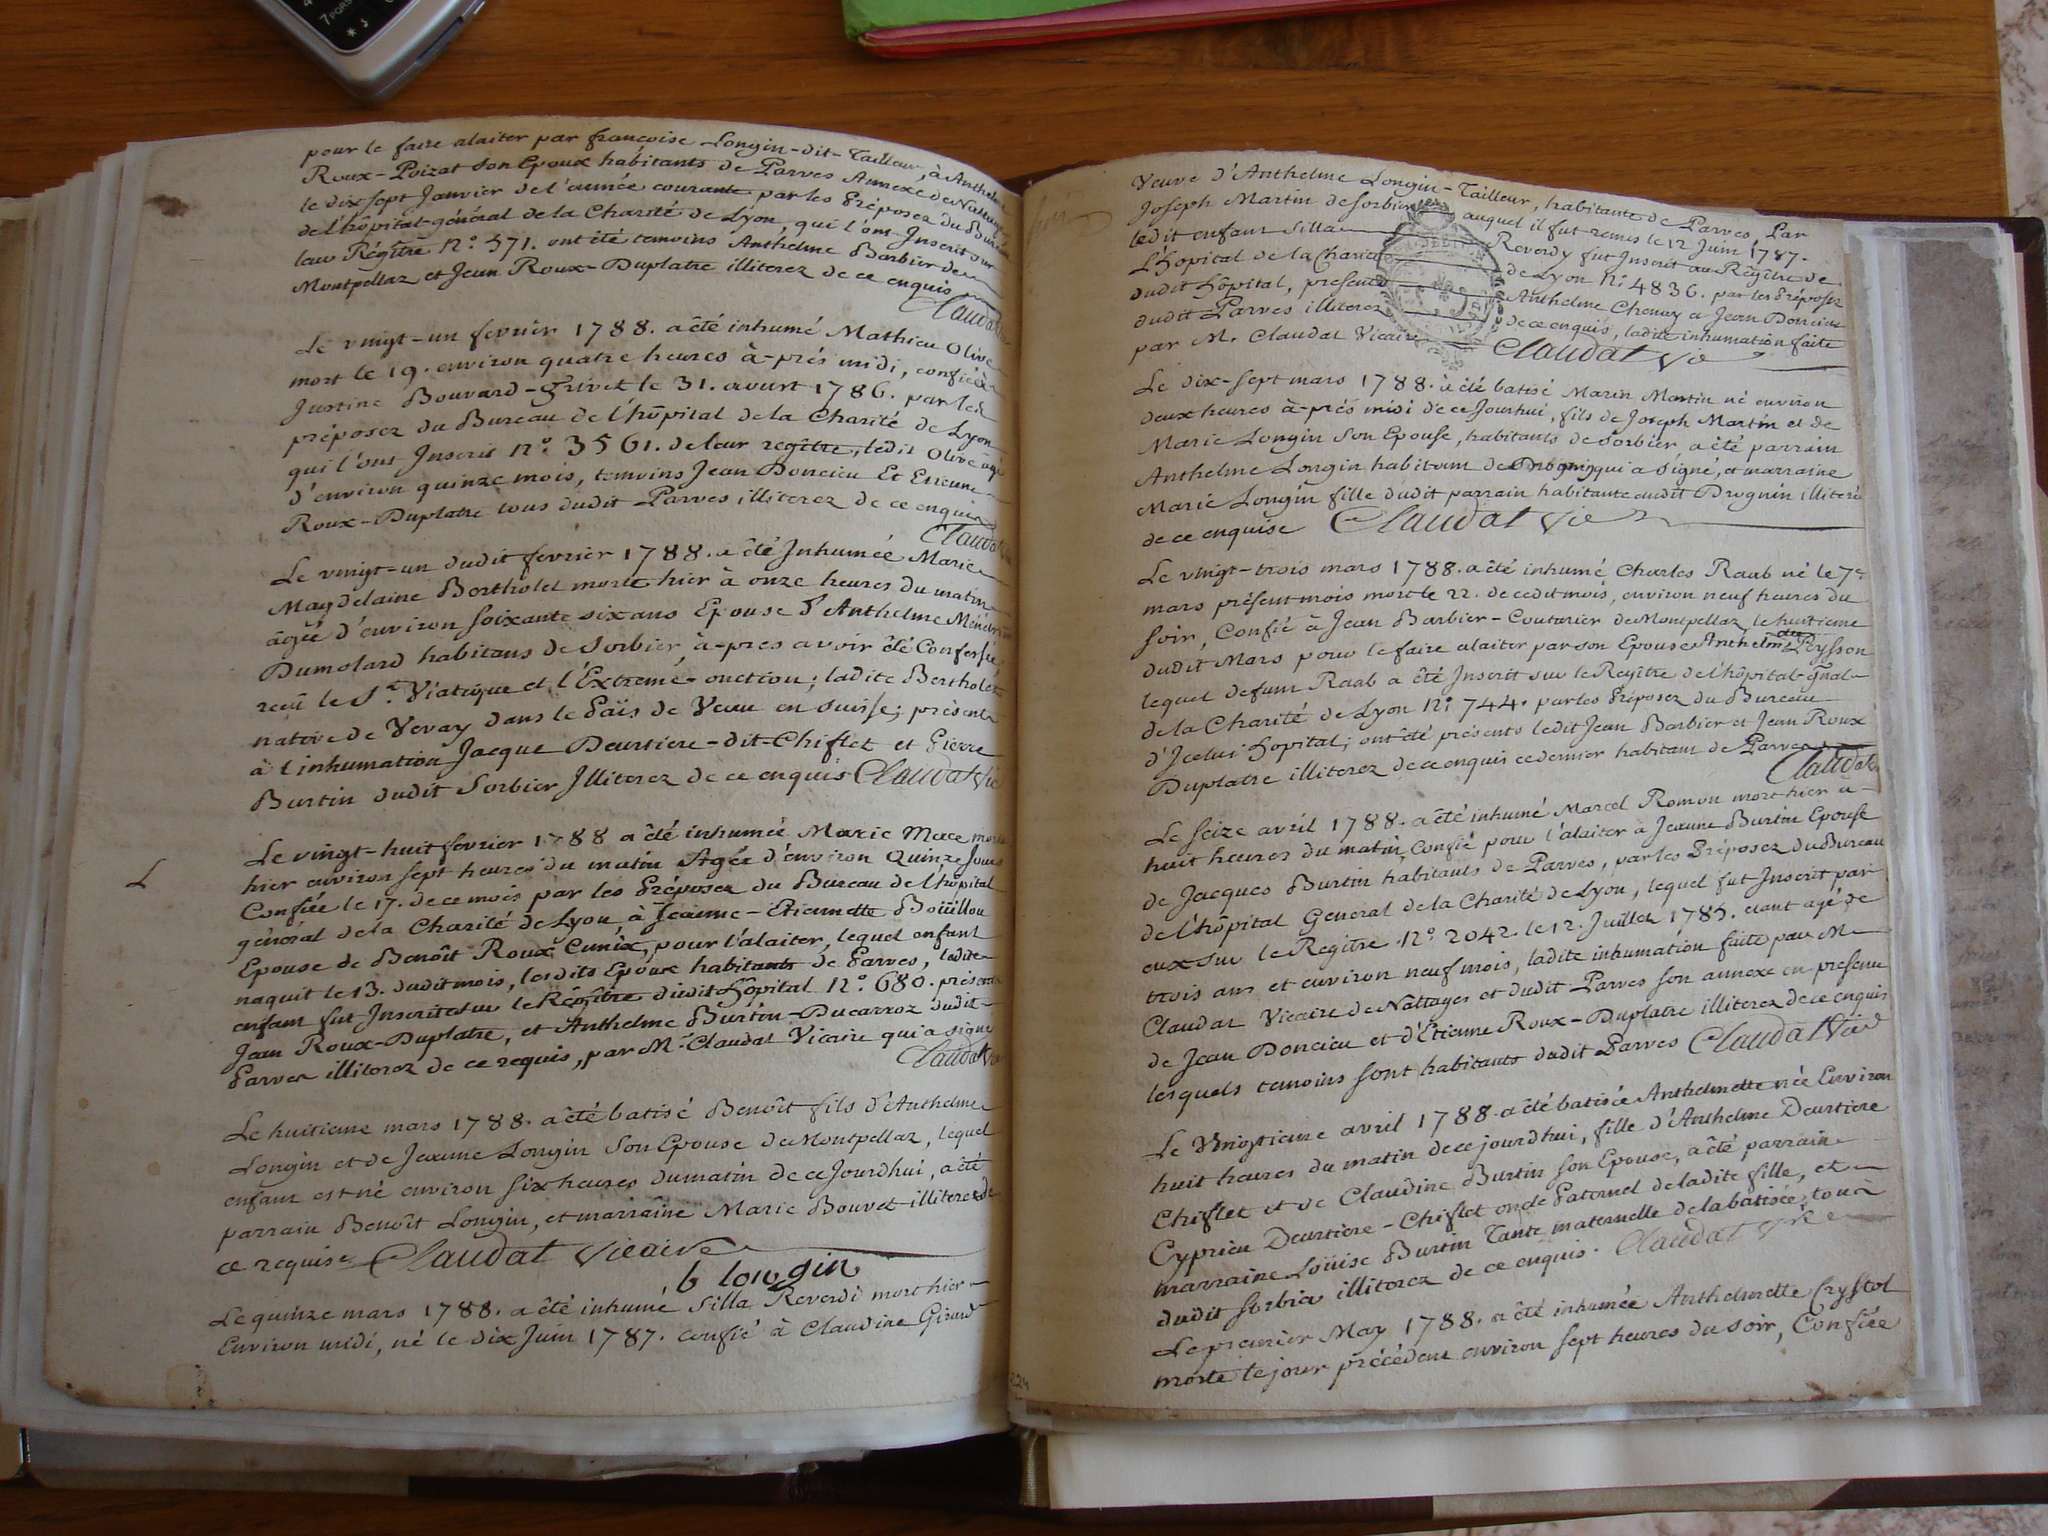 pour le faire alaiter par francoise Longin-dit-Tailleur, à Anthelme
Roux-Poizat son Epoux habitants de Parves Annexe de Nattages
le dix sept Janvier de l'année courante par les Préposez du Bureau
de l'hôpital-général de la Charité de Lyon, qui l'ont Inscrit sur
leur Régître N.º 571. ont été temoins Anthelme Barbier de
Montpellaz et Jean Roux-Duplatre illiterez de ce enquis
Claudat
Le vingt-un fevrier 1788. a êté inhumé Mathieu Olive
mort le 19. environ quatre heures à-prés midi, confié à
Justine Bouvard-Grivet le 31. avurt 1786. par les
préposez du Bureau de l'hôpital de la Charité de Lyon
qui l'ont Inscrit N.º 3561. de leur regître, ledit Olive âgé
d'environ quinze mois, temoins Jean Doncieu Et Etienne
Roux-Duplatre tous dudit Parves illiterez de ce enquis
Claudat
Le vingt-un dudit fevrier 1788. a êté Inhumée Marie
Magdelaine Bertholet morte hier à onze heures du matin
âgée d'environ soixante six ans Epouse d'Anthelme
Dumolard habitans de Sorbier à-pres avoir êté Confessée,
recû le S.t Viatique et l'Extreme-onction; ladite Bertholet
native de Vevay dans le Païs de Veau en suisse; présent
à l'inhumation Jacque Deurtiere-dit-Chiflet et Pierre
Burtin dudit Sorbier Illiterez de ce enquis Claudat Vic
L
Le vingt-huit fevrier 1788 a êté inhumée Marie Mace morte
hier environ sept heures du matin Agée d'environ Quinze Jours
Confiée le 17. de ce mois par les Préposez du Bureau de l'hôpital
général de la Charité de Lyon, à Jeanne-Etiennette Boüillou
Epouse de Benoît Roux Cunix, pour l'alaiter, lequel enfant
naquit le 13. dudit mois, lesdits Epoux habitants de Parves, ladite
enfant fut Inscrite sur le Régître dudit Hôpital N.º 680. présents
Jean Roux-Duplatre, et Anthelme Burtin-Ducarroz dudit
Parves illiterez de ce requis, par M.r Claudat Vicaire qui a signé
Claudat
Le huitieme mars 1788. a êté batisé Benoît fils d'Anthelme
Longin et de Jeanne Longin son Epouse de Montpellaz, lequel
enfant est né environ six heures du matin de ce Jourdhui, a êté
parrain Benoît Longin, et marraine Marie Bouvet illiterés de
ce requise Claudat Vicaire
b longin
Le quinze mars 1788. a êté inhumé Silla Reverdi mort hier
Environ midi, né le dix Juin 1787. confié à Claudine Girard
Veuve d'Anthelme Longin-Tailleur, habitante de Parves, Par
Joseph Martin de Sorbier auquel il fut remis le 12 Juin 1787.
ledit enfant Silla Reverdy fut Inscrit au Régître de
L'hôpital de la Charité de Lyon N.º 4836. par les Préposez
dudit hôpital, presents Anthelme Chenay et Jean Doncieu
dudit Parves illiterez de ce enquis, ladite inhumation faite
par M. Claudat Vicaire Claudat Vic
Le dix-sept mars 1788. a êté batisé Marin Martin né environ
deux heures à-prés midi de ce Jourhui, fils de Joseph Martin et de
Marie Longin son Epouse, habitants de Sorbier a êté parrain
Anthelme Longin habitant de Drognin qui a signé, et marraine
Marie Longin fille dudit parrain habitante audit Drognin illiteré
de ce enquise Claudat Vic
Le vingt-trois mars 1788. a êté inhumé Charles Raab né le 7e
mars présent mois mort le 22. de cedit mois, environ neuf heures du
soir, Confié à Jean Barbier-Couturier de Montpellaz le huitieme
dudit Mars pour le faire alaiter par son Epouse Anthelme Peysson
lequel defunt Raab a êté Inscrit sur le Regître de l'hôpital-gnal
de la Charité de Lyon N.º 744. par les Préposez du Bureau
d'Icelui hopital; ont été présents ledit Jean Barbier et Jean Roux
Duplatre illiterez de ce enquis ce dernier habitant de Parves
Claudat
Le seize avril 1788. a êté inhumé Marcel Romon mort hier a
huit heures du matin, Confié pour l'alaiter à Jeanne Burtin Epouse
de Jacques Burtin habitants de Parves, par les Préposez du Bureau
de l'hôpital General de la Charité de Lyon, lequel fut Inscrit par
eux sur le Regître N.º 2042. le 12. Juillet 1785. etant agé de
trois ans et environ neuf mois, ladite inhumation faite par M
Claudat Vicaire de Nattages et dudit Parves son annexe en presence
de Jean Doncieu et d'Etienne Roux-Duplatre illiterez de ce enquis
lesquels temoins sont habitants dudit Parves Claudat Vic
Le Vingtieme avril 1788. a êté batisée Anthelmette née Environ
huit heures du matin de ce jourdhui, fille d'Anthelme Deurtiere
Chiflet et de Claudine Burtin son Epouse, a êté parrain
Cyprien Deurtiere-Chiflet oncle Paternel de ladite fille, et
marraine Loüise Burtin Tante maternelle de la batisée, tous
dudit Sorbier illiterez de ce enquis. Claudat Vic
Le premier May 1788. a êté inhumée Anthelmette Crystol
morte le jour précédent environ sept heures du soir, Confiée